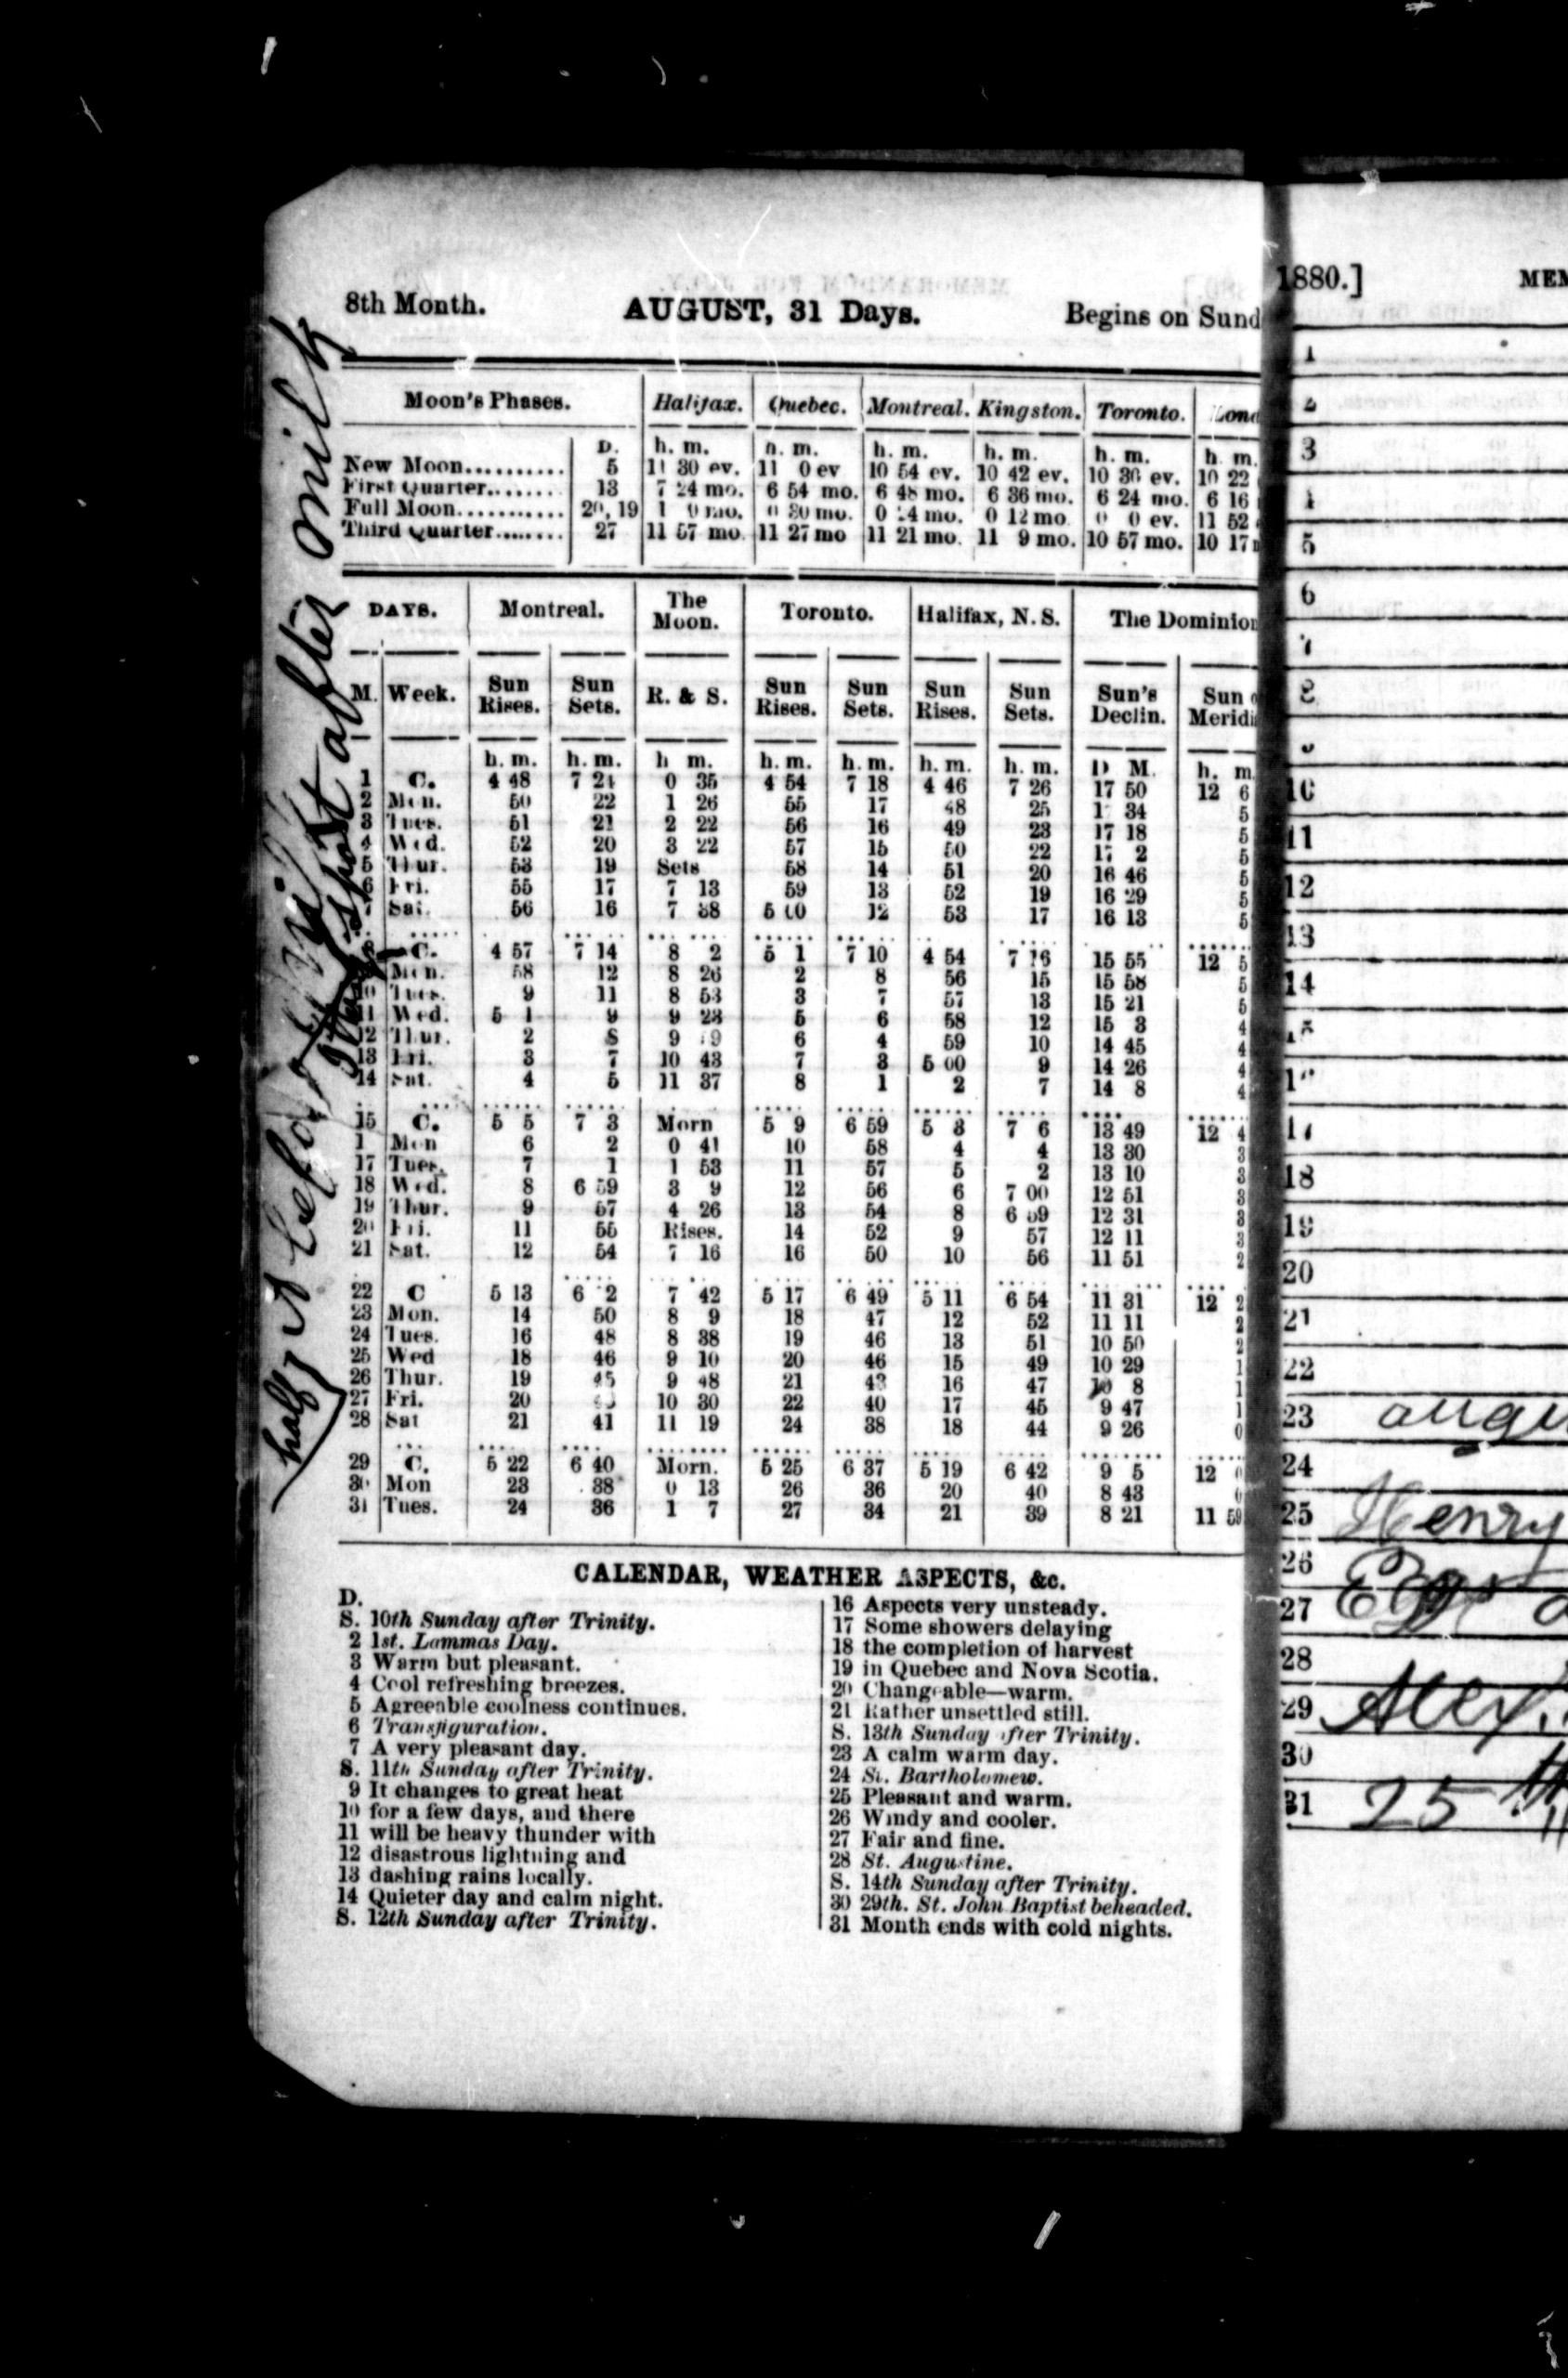 8th Month. AUGUST, 31 Days. Begins on Sund
Moon's Phases. Halifax. Quebec. Montreal. Kingston. Toronto. Lond
D. h. m. h. m. h. m. h. m. h. m. h. m.
New Moon.......... 5 11 30 ev. 11 0 ev 10 54 ev. 10 42 ev. 10 36 ev. 10 22
First Quarter........ 13 7 24 mo. 6 54 mo. 6 48 mo. 6 36 mo. 6 24 mo. 6 16
Full Moon........... 20, 19 1 0 mo. 0 30 mo. 0 24 mo. 0 12 mo. 0 0 ev. 11 52
Third Quarter........ 27 11 57 mo. 11 27 mo 11 21 mo. 11 9 mo. 10 57 mo. 10 17
DAYS. Montreal. The Moon. Toronto. Halifax, N. S. The Dominion
M. Week. Sun Rises. Sun Sets. R. & S. Sun Rises. Sun Sets. Sun Rises. Sun Sets. Sun's Declin. Sun Meridi
h. m. h. m. h m. h. m. h. m. h. m. h. m. D M. h. m
1 C. 4 48 7 24 0 35 4 54 7 18 4 46 7 26 17 50 12 6
2 Mon. 50 22 1 26 55 17 48 25 34 5
3 Tues. 51 21 2 22 56 16 49 23 17 18 5
4 Wed. 52 20 3 22 57 15 50 22 17 2 5
5 Thur. 53 19 Sets 58 14 51 20 16 46 5
6 Fri. 55 17 7 13 59 13 52 19 16 29 5
7 Sat. 56 16 7 38 5 00 12 53 17 16 13 5
C. 4 57 7 14 8 2 5 1 7 10 4 54 7 16 15 55 12 5
Mon. 58 12 8 26 2 8 56 15 15 58 5
10 Tues. 9 11 8 53 3 7 57 13 15 21 5
11 Wed. 5 1 9 9 23 5 6 58 12 15 3 4
12 Thur. 2 8 9 6 4 59 10 14 45 4
13 Fri. 3 7 10 43 7 3 5 00 9 14 26 4
14 Sat. 4 5 11 37 8 1 2 7 14 8 4
15 C. 5 5 7 3 Morn 5 9 6 59 5 3 7 6 13 49 12 4
1 Mon 6 2 0 41 10 58 4 4 13 30 3
17 Tues. 7 1 1 53 11 57 5 2 13 10 3
18 Wed. 8 6 59 3 9 12 56 6 7 00 12 51 3
19 Thur. 9 57 4 26 13 54 8 6 59 12 31 3
20 Fri. 11 55 Rises. 14 52 9 57 12 11 3
21 Sat. 12 54 7 16 16 50 10 56 11 51 2
22 C 5 13 6 2 7 42 5 17 6 49 5 11 6 54 11 31 12 2
23 Mon. 14 50 8 9 18 47 12 52 11 11 2
24 Tues. 16 48 8 38 19 46 13 51 10 50 2
25 Wed 18 46 9 10 20 46 15 49 10 29 1
26 Thur. 19 45 9 48 21 43 16 47 10 8 1
27 Fri. 20 10 30 22 40 17 45 9 47 1
28 Sat 21 41 11 19 24 38 18 44 9 26 0
29 C. 5 22 6 40 Morn. 5 25 6 37 5 19 6 42 9 5 12 0
30 Mon 23 38 0 13 26 36 20 40 8 43 0
31 Tues. 24 36 1 7 27 34 21 39 8 21 11 59
CALENDAR, WEATHER ASPECTS, &c.
D.
S. 10th Sunday after Trinity.
2 1st. Lammas Day.
3 Warm but pleasant.
4 Cool refreshing breezes.
5 Agreeable coolness continues.
6 Transfiguration.
7 A very pleasant day.
S. 11th Sunday after Trinity.
9 It changes to great heat
10 for a few days, and there
11 will be heavy thunder with
12 disastrous lightning and
13 dashing rains locally.
14 Quieter day and calm night.
S. 12th Sunday after Trinity.
16 Aspects very unsteady.
17 Some showers delaying
18 the completion of harvest
19 in Quebec and Nova Scotia.
20 Changeable—warm.
21 Rather unsettled still.
S. 13th Sunday after Trinity.
23 A calm warm day.
24 St. Bartholomew.
25 Pleasant and warm.
26 Windy and cooler.
27 Fair and fine.
28 St. Augustine.
S. 14th Sunday after Trinity.
30 29th. St. John Baptist beheaded.
31 Month ends with cold nights.
half before
after milk
1880.] MEM
1
2
3
4
5
6
7
8
9
10
11
12
13
14
15
16
17
18
19
20
21
22
23 augu
24
25 Henry
26
27
28
29 Alex.
30
31 25